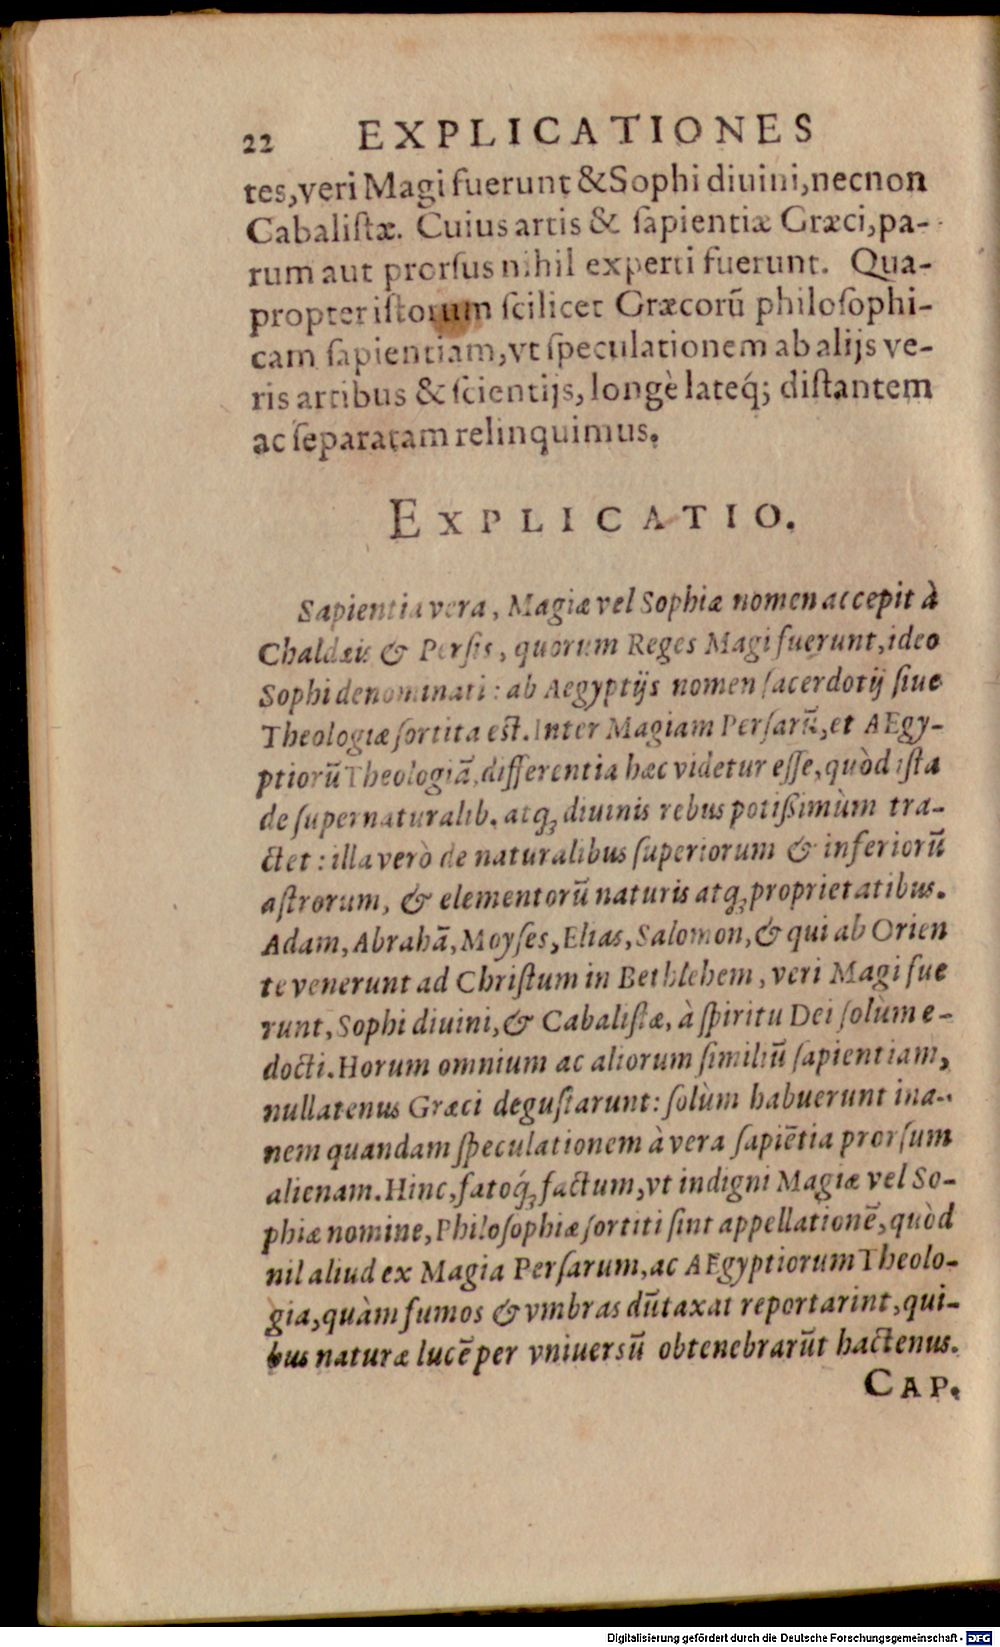 22 EXPLICATIONES
tes,veri Magi fuerunt &Sophi diuini,necnon
Cabaliſtæ. Cuius artis & ſapientiæ Græci,pa-
rum aut prorſus nihil experti fuerunt. Qua-
propter iſtorum ſcilicet Græcorũ philoſophi-
cam ſapientiam,vt ſpeculationem ab alijs ve-
ris artibus & ſcientijs, longè lateq́; diſtantem
ac ſeparatam relinquimus.
EXPLICATIO.
Sapientia vera, Magiæ vel Sophiæ nomen accepit à
Chaldæis & Perſis, quorum Reges Magi fuerunt,ideo
Sophi denominati: ab Aegyptijs nomen ſacerdotij ſiue
Theologiæ ſortita eſt. Inter Magiam Perſarũ,et AEgy-
ptiorũ Theologiã, differentia hæc videtur eſſe,quòd iſta
de ſupernaturalib. atq; diuinis rebus potißimùm tra-
ctet: illa verò de naturalibus ſuperiorum & inferiorũ
aſtrorum, & elementorũ naturis atq; proprietatibus.
Adam, Abrahã, Moyſes, Elias, Salomon, & qui ab Orien
te venerunt ad Chriſtum in Bethlehem, veri Magi fue
runt, Sophi diuini, & Cabaliſtæ, à ſpiritu Dei ſolùm e-
docti. Horum omnium ac aliorum ſimiliũ ſapientiam,
nullatenus Græci deguſtarunt: ſolùm habuerunt ina-
nem quandam ſpeculationem à vera ſapiẽtia prorſum
alienam. Hinc, fatoq́; factum, vt indigni Magiæ vel So-
phiæ nomine, Philoſophiæ ſortiti ſint appellationẽ, quòd
nil aliud ex Magia Perſarum, ac AEgyptiorum Theolo-
gia, quàm fumos & vmbras dũtaxat reportarint, qui-
bus naturæ lucẽ per vniuersũ obtenebrarũt hactenus.
CAP.
Digitalisierung gefördert durch die Deutsche Forschungsgemeinschaft - DFG